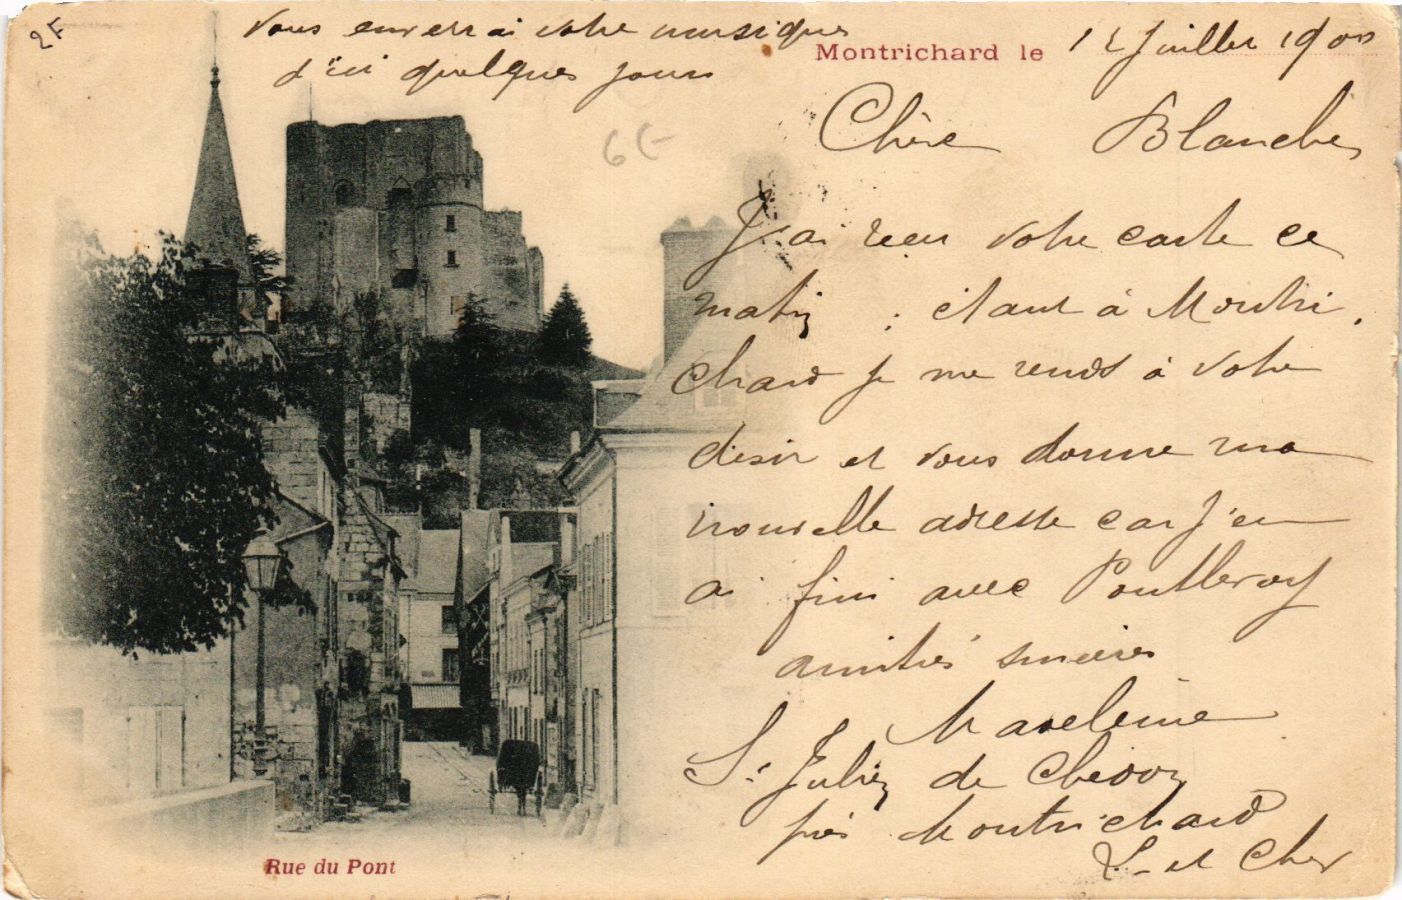 2F
Vous enverrai votre musique
d'ici quelques jours
Montrichard le 12 Juillet 1900
6F
Chère Blanche,
J'ai reçu votre carte ce
matin ; étant à Montri.
chard je me rends à votre
désir et vous donne ma
nouvelle adresse car j'en
ai fini avec Pontlevoy
amitiés sincères
Madeleine
St Julien de Chedon
près Montrichard
L. et Cher
Rue du Pont